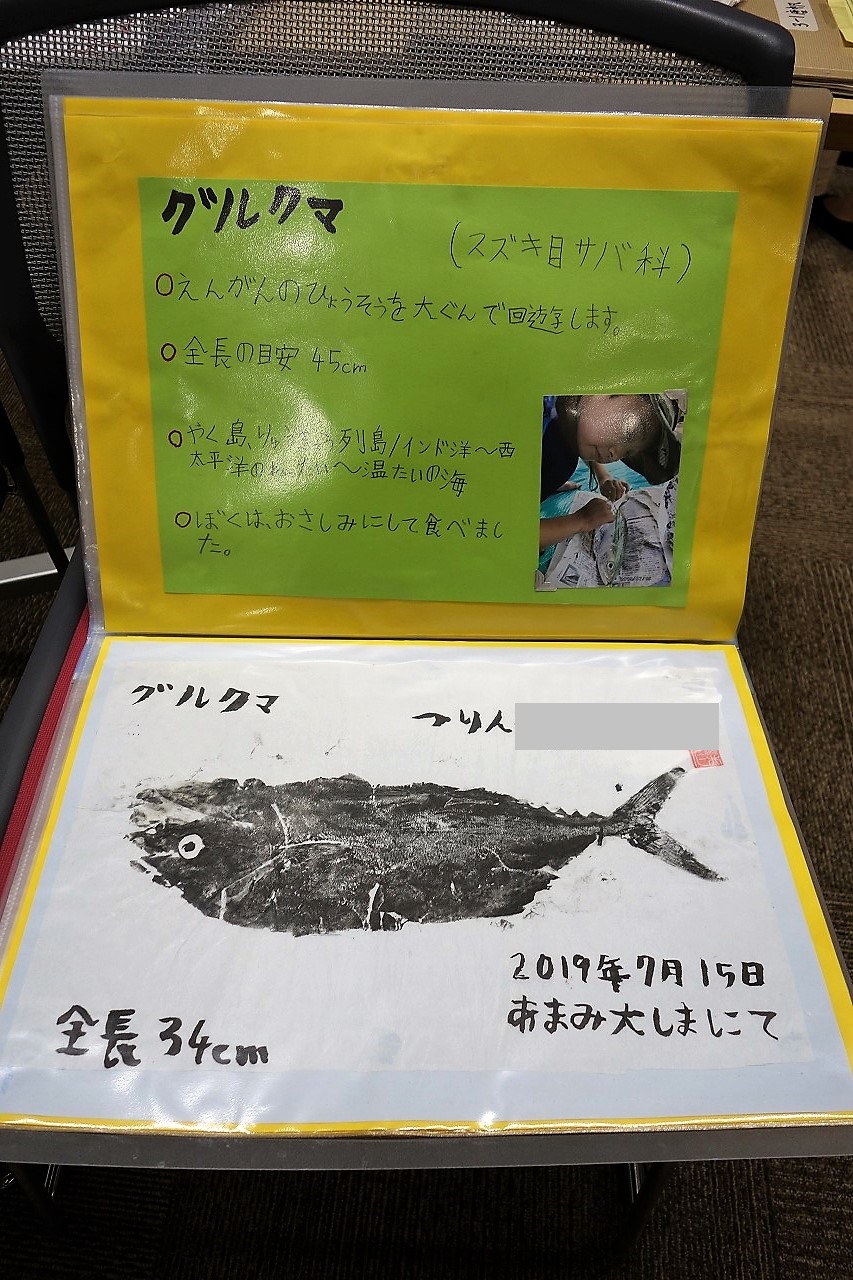 グルクマ
(スズキ目サバ科)
○えんがんのひょうそうを大ぐんで回遊します。
○全長の目安 45cm
○やく島、りゅうきゅう列島/インド洋〜西
太平洋の 〜温たいの海
○ぼくは、おさしみにして食べまし
た。
グルクマ
つりん
2019年7月15日
あまみ大しまにて
全長34cm